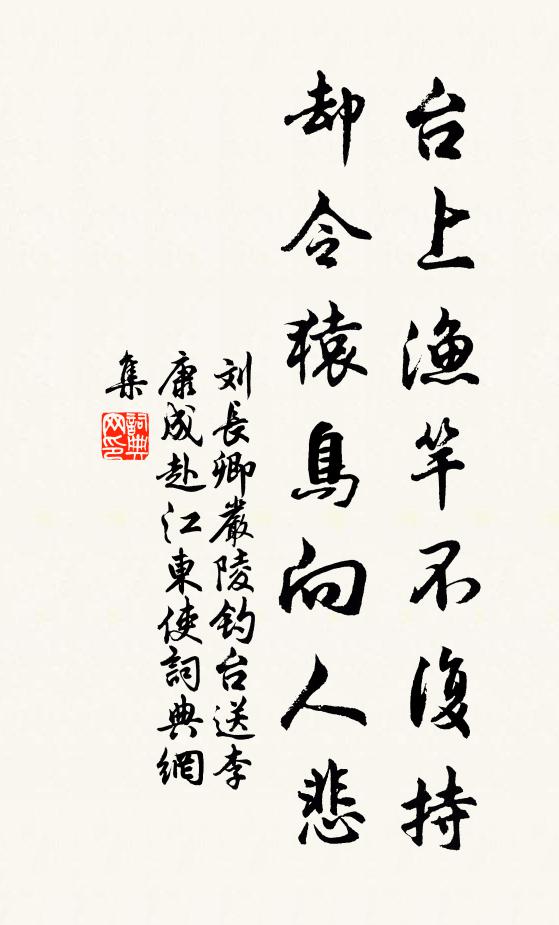 台上漁竿不復持
却令猿鳥向人悲
刘長卿嚴陵釣台送李
康成赴江東使詞典網
集
詞典网印